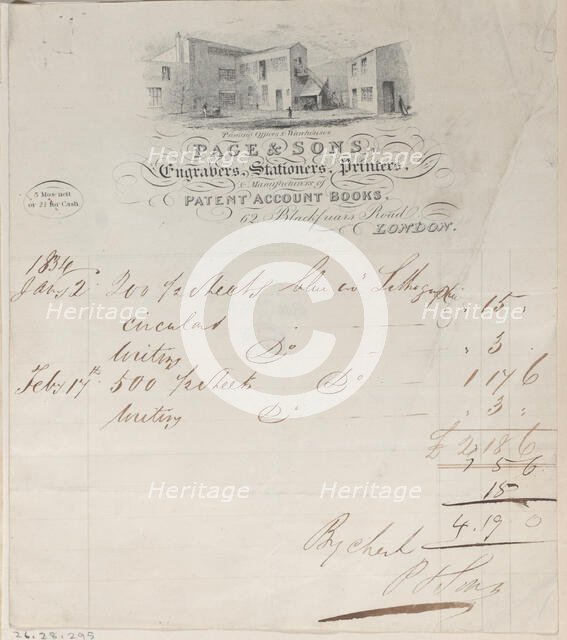 Printing Offices & Warehouses
PAGE & SONS,
Engravers, Stationers, Printers,
& Manufacturers of
PATENT ACCOUNT BOOKS,
62 Blackfriars Road
LONDON.
5 Mos. nett
or 2½ for Cash
1834
Jany 2 200 ½ sheets blue Lithographic " 15 "
circulars
Writing Do " 3 .
Feby 17th 500 ½ sheets Do 1 17 6
Writing Do " 3 "
£ 2 18 6
7 5 6
18
4.19 0
By check
P & Sons
26.28.295
Heritage
Heritage
Heritage
Heritage
Heritage
Heritage
Heritage
Heritage